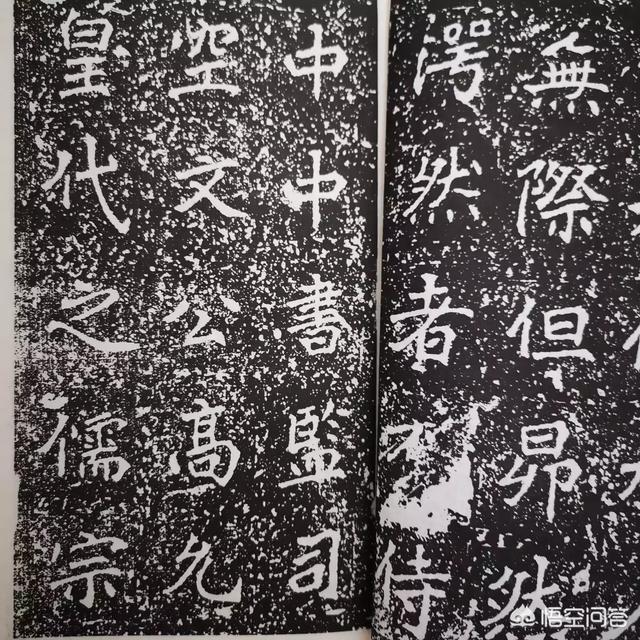 無際但昂然
然者侍
中中書監司
空文公高允
皇代之儒宗
悟空问答